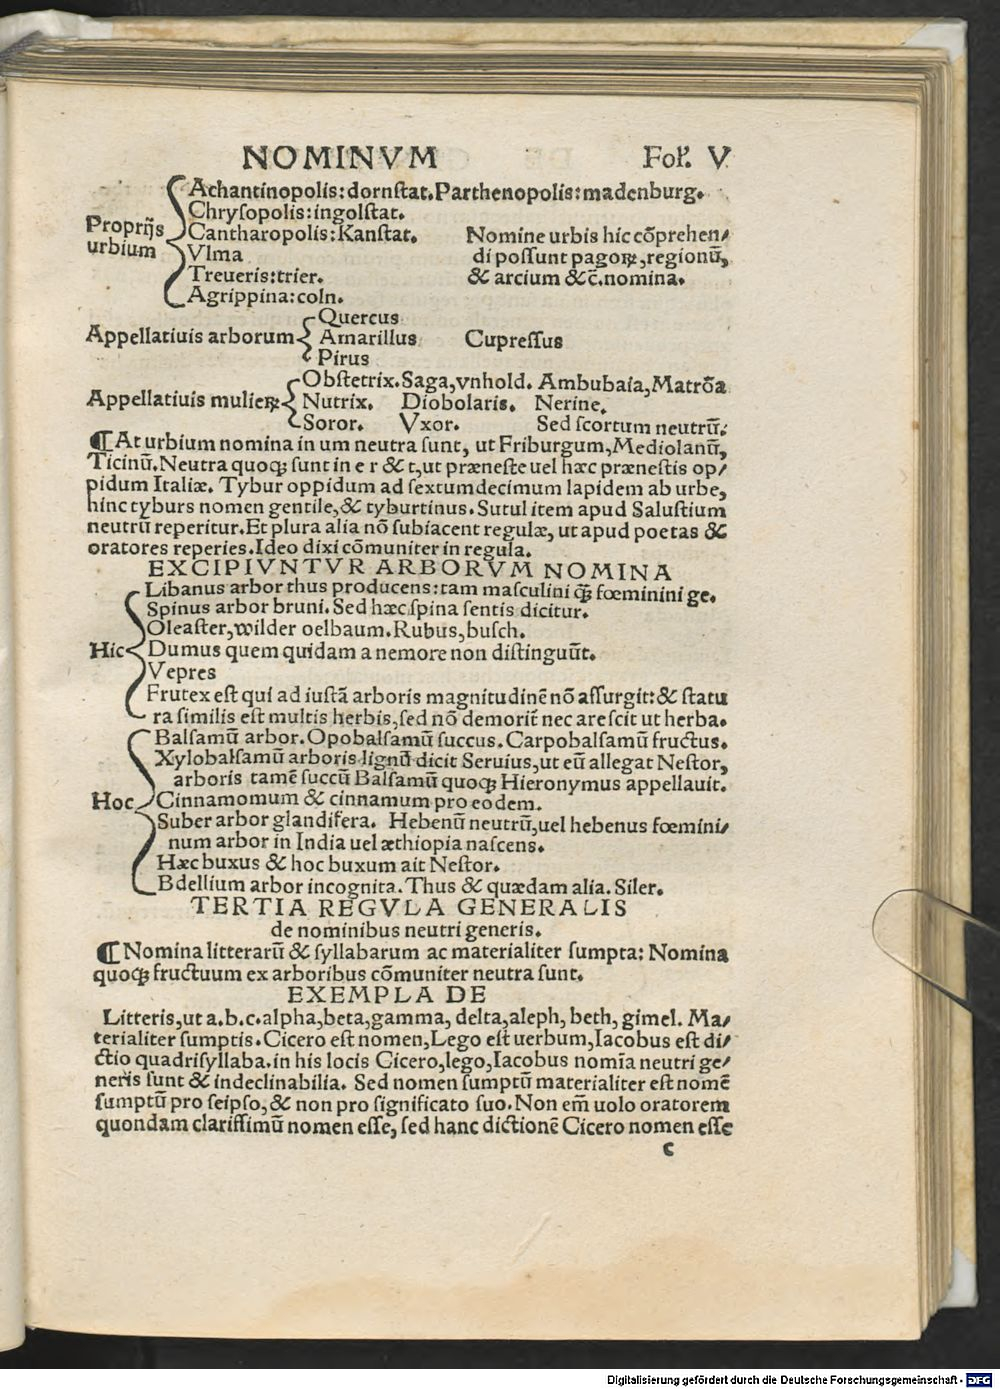 NOMINVM Fol. V
Achantinopolis:dornſtat.Parthenopolis:madenburg.
Chryſopolis:ingolſtat.
Proprijs urbium
Cantharopolis:Kanſtat. Nomine urbis hic cõprehen/
Vlma di poſſunt pagoꝝ,regionũ,
Treueris:trier. & arcium &c̃.nomina.
Agrippina:coln.
Quercus
Appellatiuis arborum Amarillus Cupreſſus
Pirus
Obſtetrix.Saga,vnhold. Ambubaia,Matrõa
Appellatiuis mulieꝝ Nutrix. Diobolaris. Nerine.
Soror. Vxor. Sed ſcortum neutrũ.
¶At urbium nomina in um neutra ſunt, ut Friburgum,Mediolanũ,
Ticinũ.Neutra quoqꝫ ſunt in e r & t,ut præneſte uel hæc præneſtis op/
pidum Italiæ. Tybur oppidum ad ſextumdecimum lapidem ab urbe,
hinc tyburs nomen gentile,& tyburtinus. Sutul item apud Saluſtium
neutrũ reperitur.Et plura alia nõ ſubiacent regulæ, ut apud poetas &
oratores reperies.Ideo dixi cõmuniter in regula.
EXCIPIVNTVR ARBORVM NOMINA
Libanus arbor thus producens:tam maſculini qꝫ fœminini ge.
Spinus arbor bruni. Sed hæc ſpina ſentis dicitur.
Oleaſter,wilder oelbaum.Rubus,buſch.
Hic Dumus quem quidam a nemore non diſtinguũt.
Vepres
Frutex eſt qui ad iuſtã arboris magnitudinẽ nõ aſſurgit:& ſtatu
ra ſimilis eſt multis herbis,ſed nõ demorit̃ nec areſcit ut herba.
Balſamũ arbor.Opobalſamũ ſuccus.Carpobalſamũ fructus.
Xylobalſamũ arboris lignũ dicit Seruius,ut eũ allegat Neſtor,
arboris tamẽ ſuccũ Balſamũ quoqꝫ Hieronymus appellauit.
Hoc Cinnamomum & cinnamum pro eodem.
Suber arbor glandifera. Hebenũ neutrũ,uel hebenus fœmini/
num arbor in India uel æthiopia naſcens.
Hæc buxus & hoc buxum ait Neſtor.
Bdellium arbor incognita.Thus & quædam alia. Siler.
TERTIA REGVLA GENERALIS
de nominibus neutri generis.
¶Nomina litterarũ & ſyllabarum ac materialiter ſumpta: Nomina
quoqꝫ fructuum ex arboribus cõmuniter neutra ſunt.
EXEMPLA DE
Litteris,ut a.b.c.alpha,beta,gamma, delta,aleph, beth, gimel. Ma/
terialiter ſumptis.Cicero eſt nomen,Lego eſt uerbum,Iacobus eſt di/
ctio quadriſyllaba.in his locis Cicero,lego,Iacobus nomĩa neutri ge/
neris ſunt & indeclinabilia. Sed nomen ſumptũ materialiter eſt nomẽ
ſumptũ pro ſeipſo,& non pro ſignificato ſuo.Non em̃ uolo oratorem
quondam clariſſimũ nomen eſſe, ſed hanc dictionẽ Cicero nomen eſſe
c
Digitalisierung gefördert durch die Deutsche Forschungsgemeinschaft - DFG